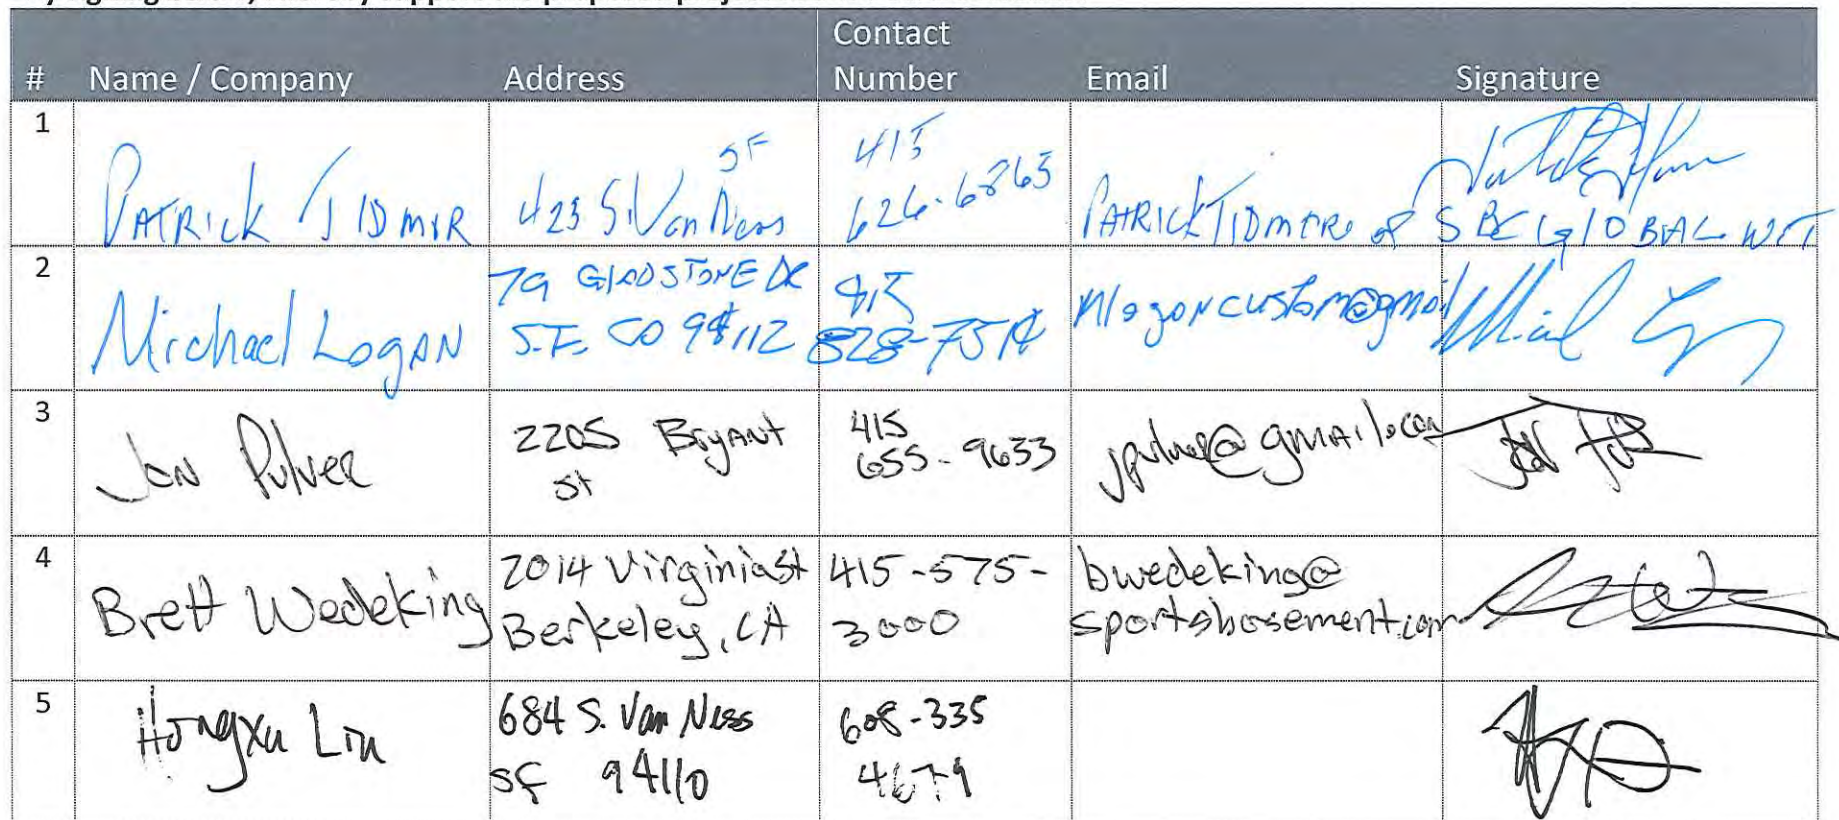 # Name / Company Address Contact Number Email Signature
1 PATRICK TIDMAR 423 S. Van Ness SF 415 626-6865 PATRICKTIDMARE @ SBCGlOBAL NET
2 Michael Logan 79 GLADSTONE DR S.F. CA 94112 415 828-7514 mlogancustom@gmail
3 Jon Pulver 2205 Bryant st 415 655-9633 jpulver@gmail.com
4 Brett Wedeking 2014 Virginia St Berkeley, CA 415-575-3000 bwedeking@sportsbasement.com
5 Hongxu Lin 684 S. Van Ness SF 94110 608-335 4679